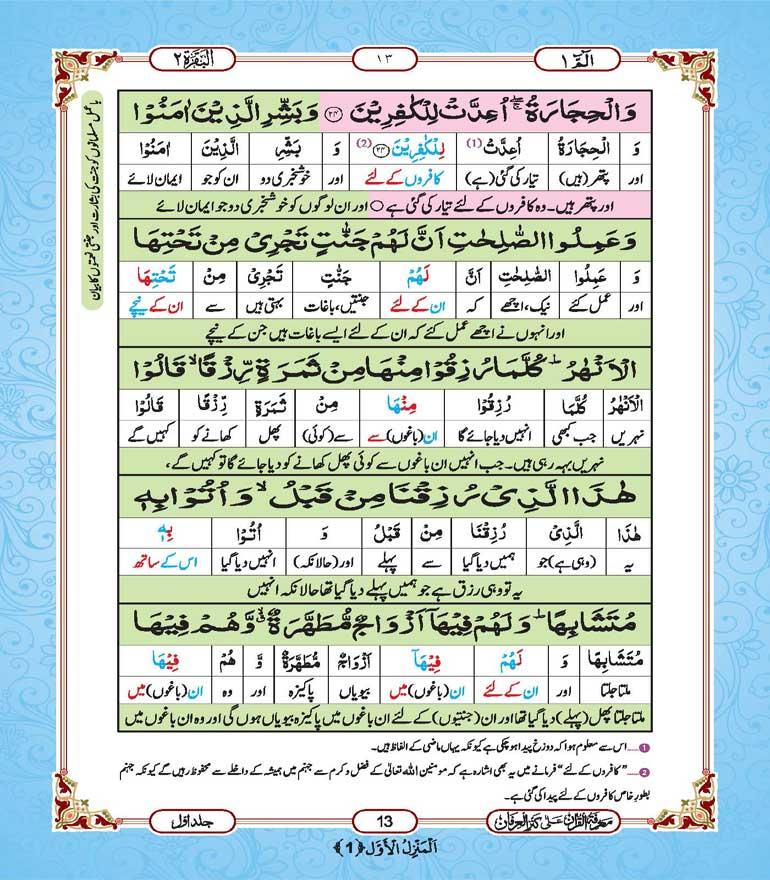 الٓمّٓ ١
١٣
اَلْبَقَرَة ٢
باعمل مسلمانوں کو جنت کی بشارت اور جنتی نعمتوں کا بیان
وَالْحِجَارَةُ ۚۖ اُعِدَّتْ لِلْكٰفِرِیْنَ ﴿۲۴﴾ وَ بَشِّرِ الَّذِیْنَ اٰمَنُوْا
وَ الْحِجَارَةُ اُعِدَّتْ (1) لِلْكٰفِرِیْنَ ﴿۲۴﴾ (2) وَ بَشِّرِ الَّذِیْنَ اٰمَنُوْا
اور پتھر (ہیں) تیار کی گئی (ہے) کافروں کے لئے اور خوشخبری دو ان کو جو ایمان لائے
اور پتھر ہیں۔ وہ کافروں کے لئے تیار کی گئی ہے ○ اور ان لوگوں کو خوشخبری دو جو ایمان لائے
وَ عَمِلُوا الصّٰلِحٰتِ اَنَّ لَهُمْ جَنّٰتٍ تَجْرِیْ مِنْ تَحْتِهَا
وَ عَمِلُوا الصّٰلِحٰتِ اَنَّ لَهُمْ جَنّٰتٍ تَجْرِیْ مِنْ تَحْتِهَا
اور عمل کئے نیک، اچھے کہ ان کے لئے جنتیں، باغات بہتی ہیں سے ان کے نیچے
اور انہوں نے اچھے عمل کئے کہ ان کے لئے ایسے باغات ہیں جن کے نیچے
الْاَنْهٰرُ ؕ كُلَّمَا رُزِقُوْا مِنْهَا مِنْ ثَمَرَةٍ رِّزْقًا ۙ قَالُوْا
الْاَنْهٰرُ كُلَّمَا رُزِقُوْا مِنْهَا مِنْ ثَمَرَةٍ رِّزْقًا قَالُوْا
نہریں جب کبھی انہیں دیا جائے گا ان (باغوں) سے سے (کوئی) پھل کھانے کو کہیں گے
نہریں بہہ رہی ہیں۔ جب انہیں ان باغوں سے کوئی پھل کھانے کو دیا جائے گا تو کہیں گے،
هٰذَا الَّذِیْ رُزِقْنَا مِنْ قَبْلُ ۙ وَ اُتُوْا بِهٖ
هٰذَا الَّذِیْ رُزِقْنَا مِنْ قَبْلُ وَ اُتُوْا بِهٖ
یہ (وہی ہے) جو ہمیں دیا گیا سے پہلے اور (حالانکہ) انہیں دیا گیا اس کے ساتھ
یہ تو وہی رزق ہے جو ہمیں پہلے دیا گیا تھا حالانکہ انہیں
مُتَشَابِهًا ؕ وَ لَهُمْ فِیْهَاۤ اَزْوَاجٌ مُّطَهَّرَةٌ ۙۗ وَّ هُمْ فِیْهَا
مُتَشَابِهًا وَ لَهُمْ فِیْهَاۤ اَزْوَاجٌ مُّطَهَّرَةٌ وَّ هُمْ فِیْهَا
ملتا جلتا اور ان کے لئے ان (باغوں) میں بیویاں پاکیزہ اور وہ ان (باغوں) میں
ملتا جلتا پھل (پہلے) دیا گیا تھا اور ان (جنتیوں) کے لئے ان باغوں میں پاکیزہ بیویاں ہوں گی اور وہ ان باغوں میں
1 ..... اس سے معلوم ہوا کہ دوزخ پیدا ہو چکی ہے کیونکہ یہاں ماضی کے الفاظ ہیں۔
2 ..... "کافروں کے لئے" فرمانے میں یہ بھی اشارہ ہے کہ مومنین اللہ تعالیٰ کے فضل و کرم سے جہنم میں ہمیشہ کے داخلے سے محفوظ رہیں گے کیونکہ جہنم
بطورِ خاص کافروں کے لئے پیدا کی گئی ہے۔
معرفة القرآن علی کنز العرفان
13
جلد اوّل
اَلْمَنْزِلُ الْاَوَّل ﴿1﴾